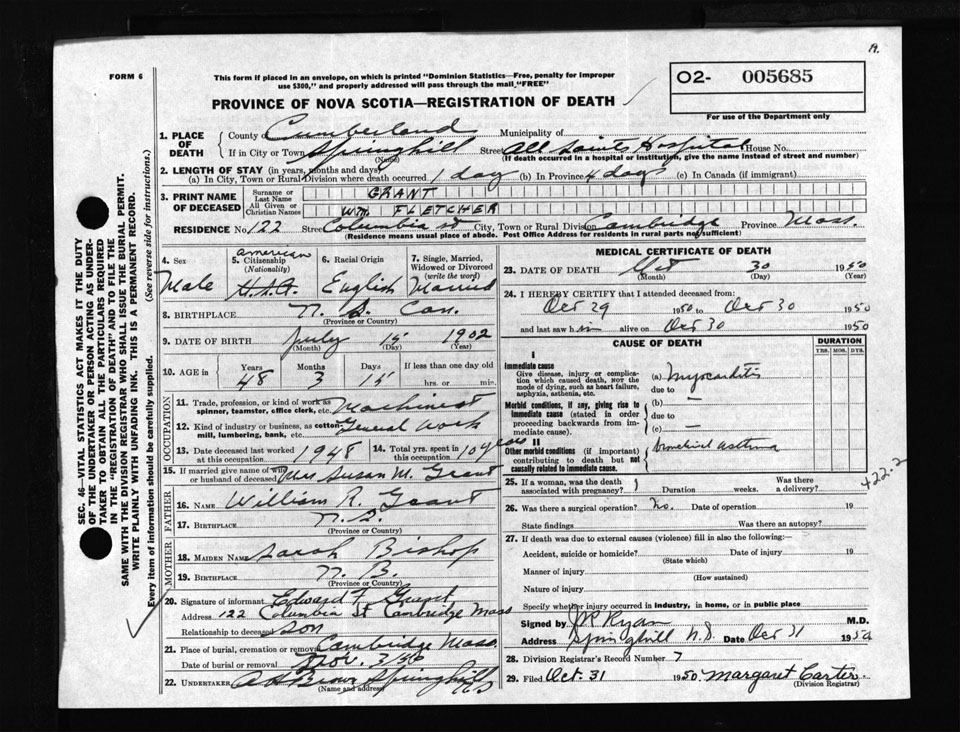 A.
FORM 6
This form if placed in an envelope, on which is printed "Dominion Statistics—Free, penalty for improper
use $300," and properly addressed will pass through the mail "FREE"
O2- 005685
For use of the Department only
PROVINCE OF NOVA SCOTIA—REGISTRATION OF DEATH
1. PLACE OF DEATH
County of Cumberland Municipality of
If in City or Town Springhill Street All Saints Hospital House No.
(Name) (If death occurred in a hospital or institution, give the name instead of street and number)
2. LENGTH OF STAY (in years, months and days)
(a) In City, Town or Rural Division where death occurred 1 day (b) In Province 4 days (c) In Canada (if immigrant)
3. PRINT NAME OF DECEASED
Surname or Last Name GRANT
All Given or Christian Names WM FLETCHER
RESIDENCE No. 122 Street Columbia St City, Town or Rural Division Cambridge Province Mass.
(Residence means usual place of abode. Post Office Address for residents in rural parts not sufficient)
4. Sex
Male
5. Citizenship
(Nationality)
American
U.S.A.
6. Racial Origin
English
7. Single, Married, Widowed or Divorced
(write the word)
Married
8. BIRTHPLACE N. S. Can.
(Province or Country)
9. DATE OF BIRTH July 15 1902
(Month) (Day) (Year)
10. AGE in
Years 48
Months 3
Days 15
If less than one day
hrs. or min.
OCCUPATION
11. Trade, profession or kind of work as
spinner, teamster, office clerk, etc. Machinist
12. Kind of industry or business, as cotton
mill, lumbering, bank, etc. General Work
13. Date deceased last worked at this occupation 1948
14. Total yrs. spent in this occupation 10 years
15. If married give name of wife
or husband of deceased Mrs Susan M. Grant
FATHER
16. Name William R. Grant
17. BIRTHPLACE N. S.
(Province or Country)
MOTHER
18. MAIDEN NAME Sarah Bishop
19. BIRTHPLACE N. B.
(Province or Country)
20. Signature of informant Edward F Grant
Address 122 Columbia St Cambridge Mass
Relationship to deceased Son
21. Place of burial, cremation or removal Cambridge Mass.
Date of burial or removal Nov. 3/50
22. UNDERTAKER A H Brown Springhill N.S
(Name and address)
MEDICAL CERTIFICATE OF DEATH
23. DATE OF DEATH Oct 30 1950
(Month) (Day)
24. I HEREBY CERTIFY that I attended deceased from:
Oct 29 1950 to Oct 30 1950
and last saw him alive on Oct 30 1950
CAUSE OF DEATH
DURATION
YRS. MOS. DYS.
I
Immediate cause
Give disease, injury or complication which caused death, NOT the mode of dying, such as heart failure, asphyxia, asthenia, etc.
(a) Myocarditis
due to
Morbid conditions, if any, giving rise to immediate cause (stated in order proceeding backwards from immediate cause).
(b) —
due to
(c) —
II
Other morbid conditions (if important) contributing to death but not causally related to immediate cause.
Bronchial asthma
422.2
25. If a woman, was the death associated with pregnancy? Duration weeks. Was there a delivery?
26. Was there a surgical operation? No. Date of operation 19
State findings Was there an autopsy?
27. If death was due to external causes (violence) fill in also the following:—
Accident, suicide or homicide? Date of injury 19
(State which)
Manner of injury
(How sustained)
Nature of injury
Specify whether injury occurred in industry, in home, or in public place
Signed by JR Ryan M.D.
Address Springhill N.S. Date Oct 31 1950
28. Division Registrar's Record Number 7
29. Filed Oct. 31 1950 Margaret Carter.
(Division Registrar)
SEC. 46—VITAL STATISTICS ACT MAKES IT THE DUTY
OF THE UNDERTAKER OR PERSON ACTING AS UNDER-
TAKER TO OBTAIN ALL THE PARTICULARS REQUIRED
IN THE "REGISTRATION OF DEATH" AND TO FILE THE
SAME WITH THE DIVISION REGISTRAR WHO SHALL ISSUE THE BURIAL PERMIT.
WRITE PLAINLY WITH UNFADING INK. THIS IS A PERMANENT RECORD.
Every item of information should be carefully supplied. (See reverse side for instructions.)